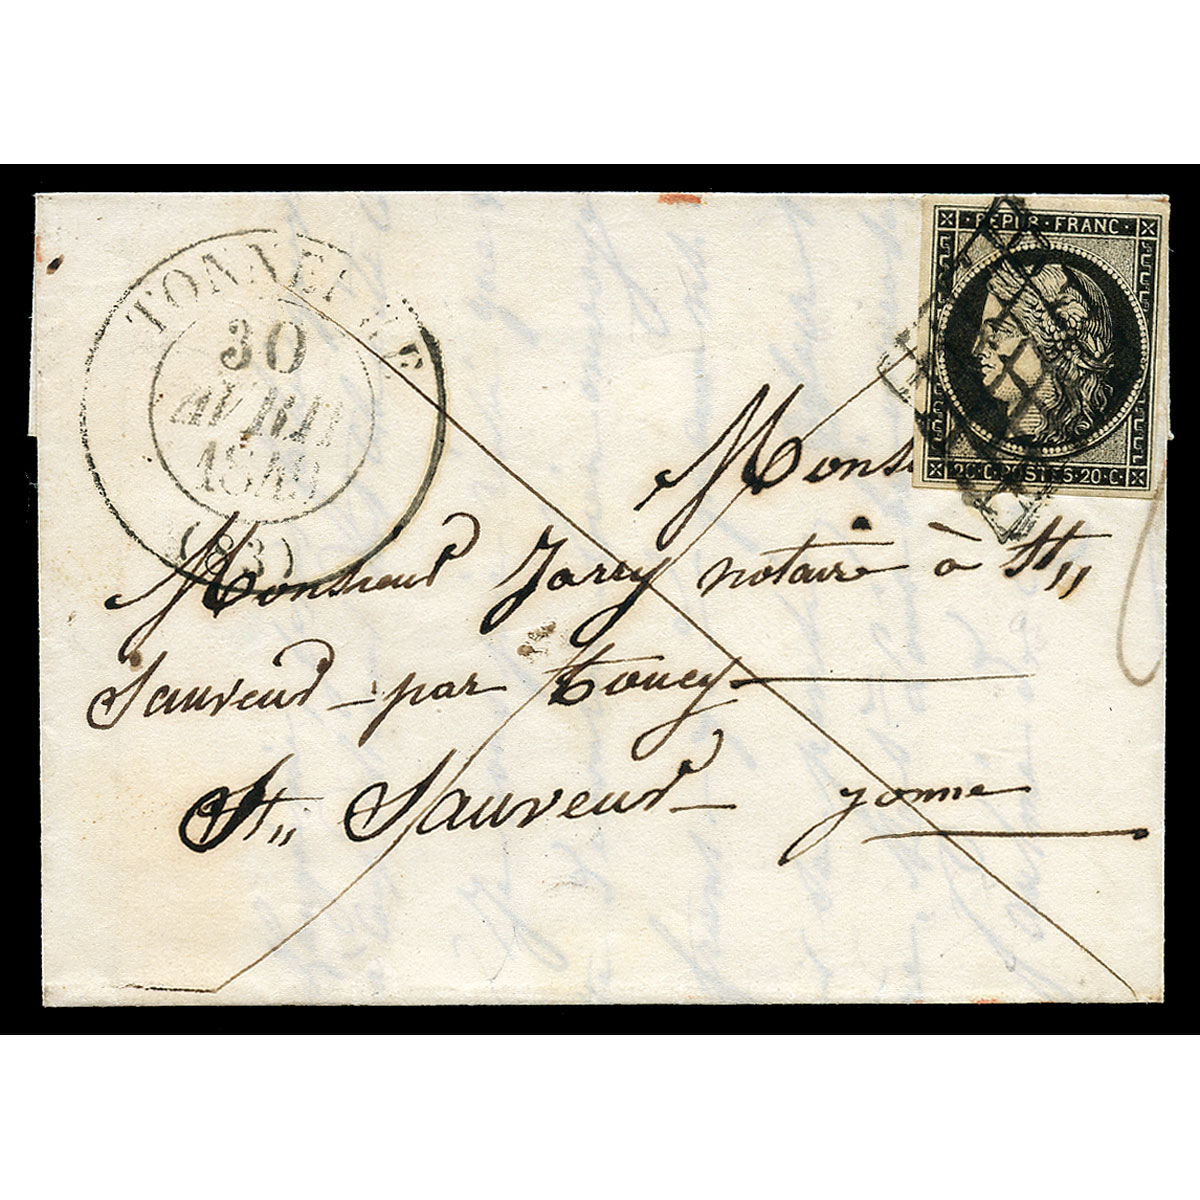 TONNERRE
30
AVRIL
1849
(83)
REPUB. FRANC.
20.C. POSTES. 20.C.
Mons
Monsieur Jarry notaire à St,,
Sauveur par toucy
St,, Sauveur yonne